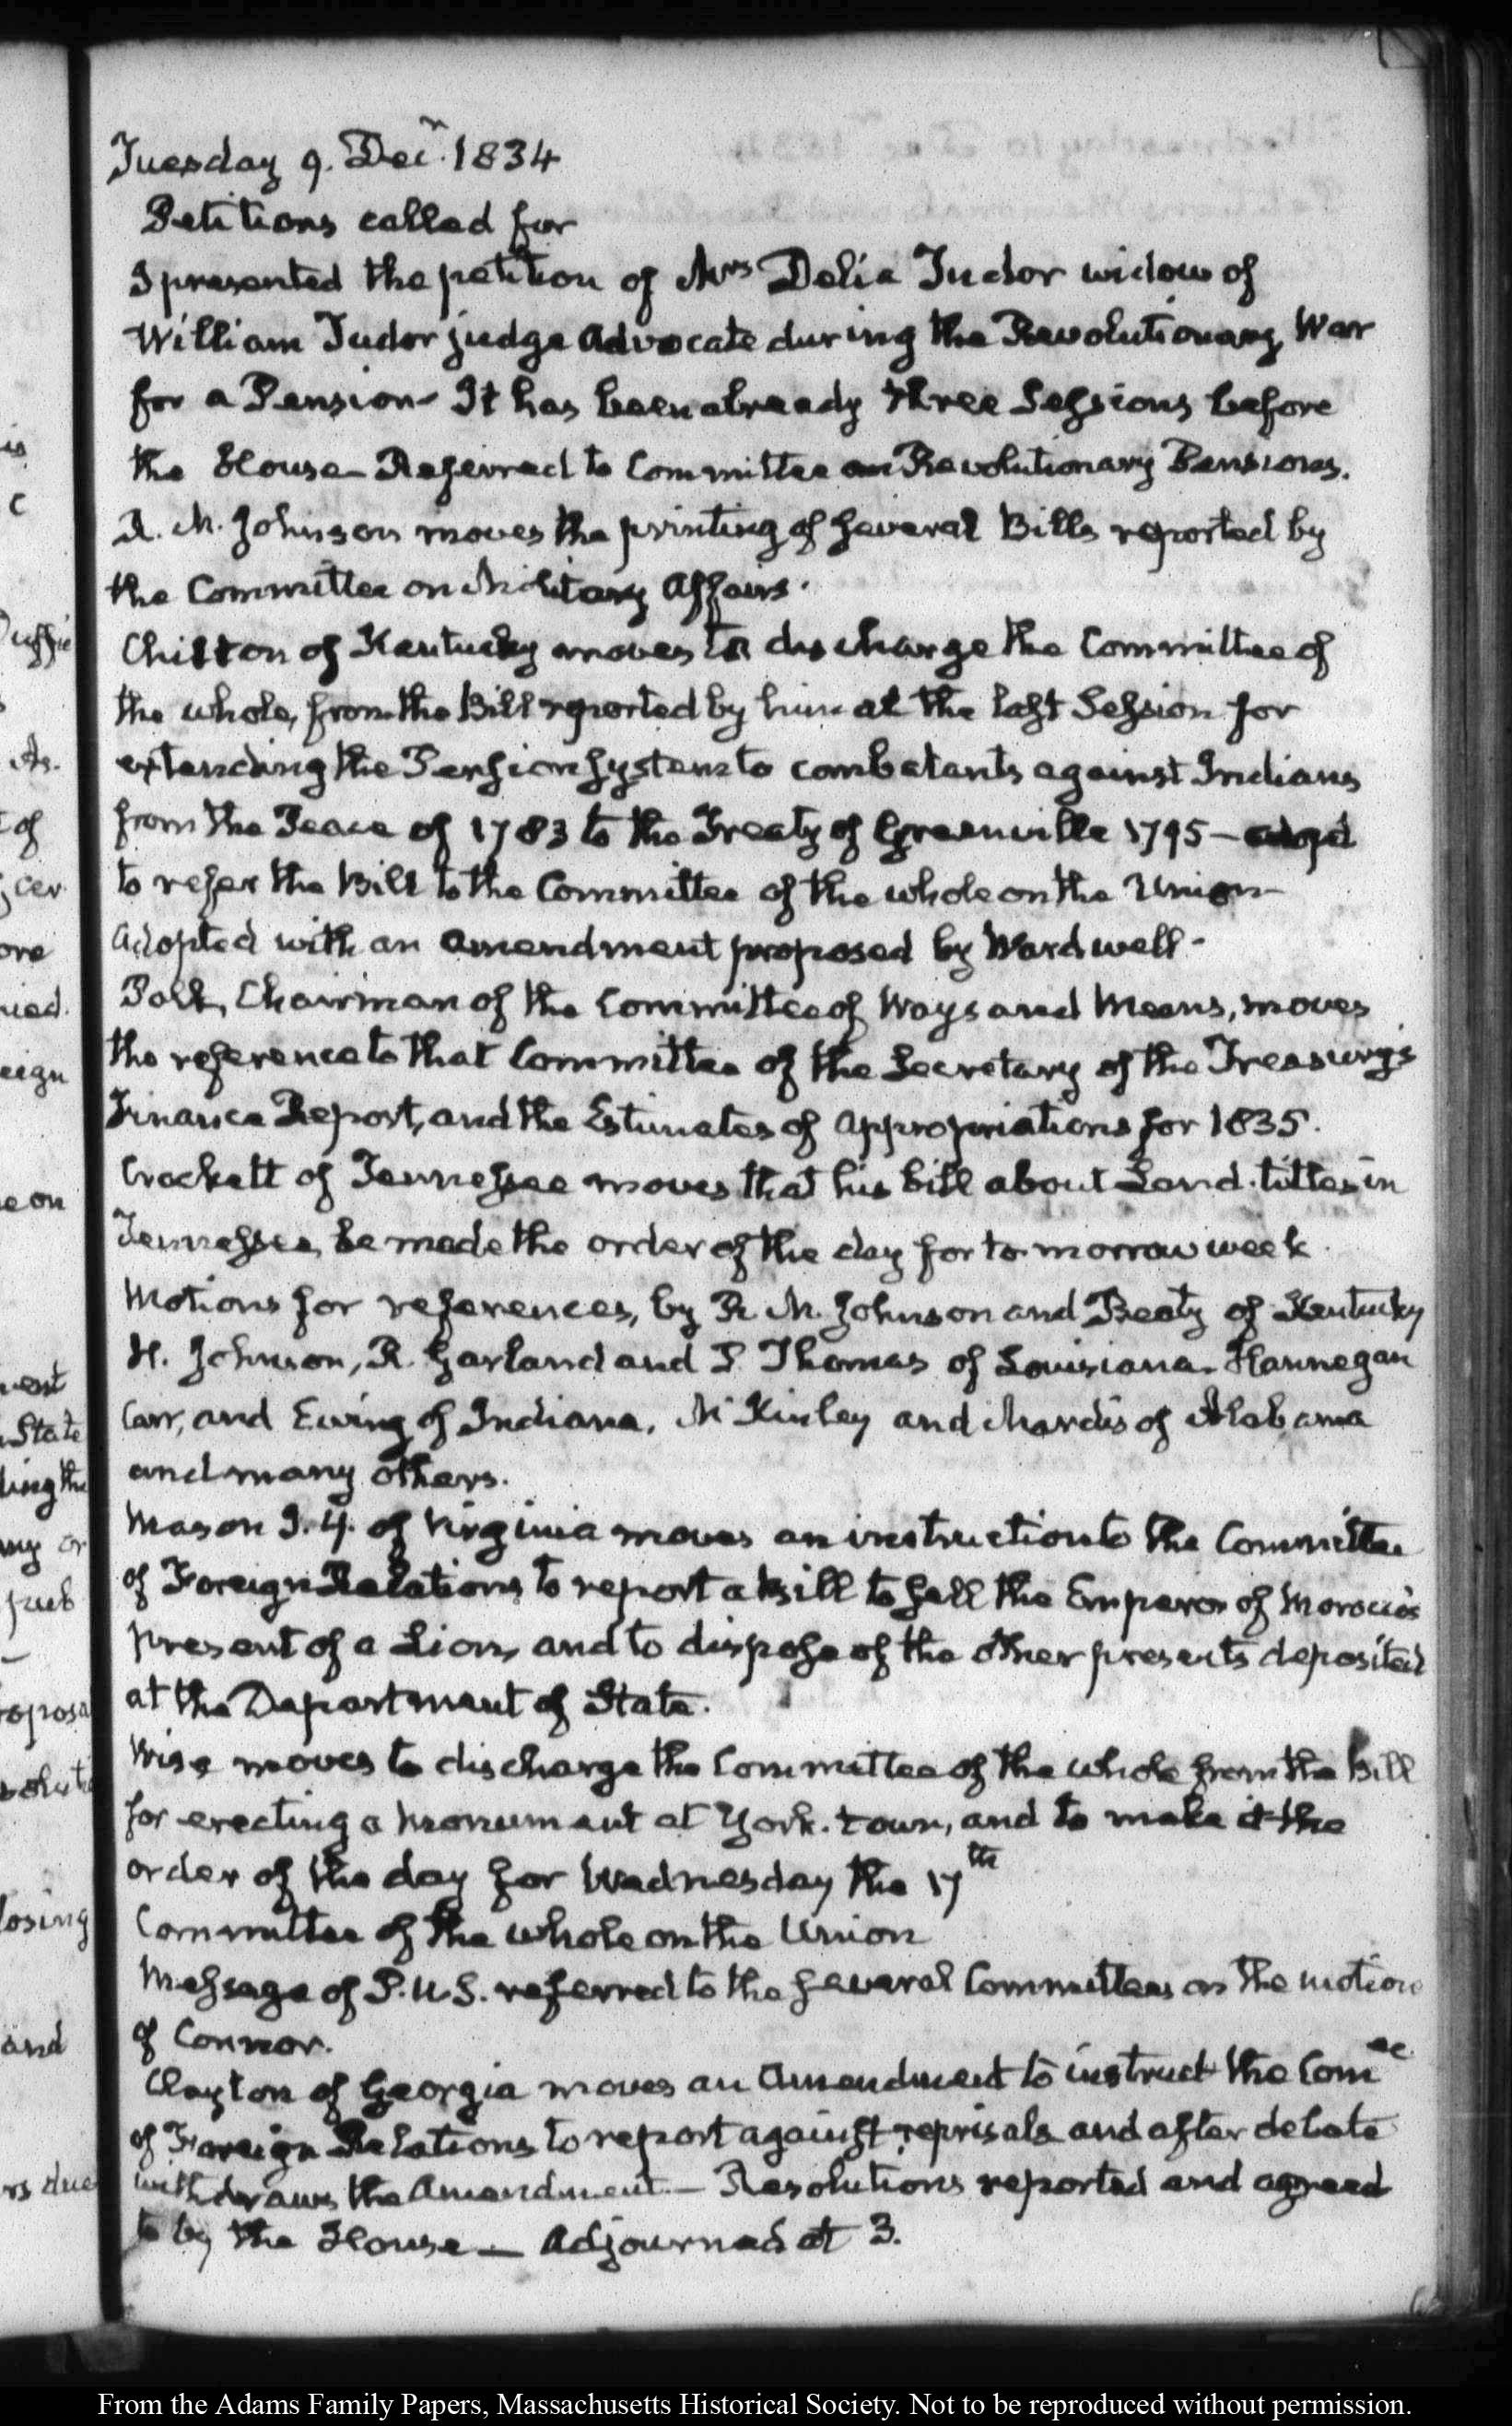 Tuesday 9. Decr. 1834
Petitions called for
I presented the petition of Mrs Delia Tudor widow of
William Tudor judge Advocate during the Revolutionary War
for a Pension- It has been already three Sessions before
the House- Referred to Committee on Revolutionary Pensions.
R. M. Johnson moves the printing of several Bills reported by
the Committee on Military Affairs.
Chilton of Kentucky moves to discharge the Committee of
the whole, from the Bill reported by him at the last Session for
extending the Pension system to combatants against Indians
from the Peace of 1783 to the Treaty of Greenville 1795 -
to refer the Bill to the Committee of the whole on the Union-
Adopted with an amendment proposed by Wardwell-
Polk, Chairman of the Committee of Ways and Means, moves
the reference to that Committee of the Secretary of the Treasury's
Finance Report, and the Estimates of appropriations for 1835.
Crockett of Tennessee moves that his bill about Land-titles in
Tennessee, be made the order of the day for to-morrow week.
Motions for references, by R. M. Johnson and Beaty of Kentucky
H. Johnson, R. Garland and P. Thomas of Louisiana- Hannegan
Carr, and Ewing of Indiana, McKinley and Mardis of Alabama
and many others.
Mason J. Y. of Virginia moves an instruction to the Committee
of Foreign Relations to report a bill to sell the Emperor of Morocco's
present of a Lion, and to dispose of the other presents deposited
at the Department of State.
Wise moves to discharge the Committee of the whole from the bill
for erecting a monument at York-town, and to make it the
order of the day for Wednesday the 17th
Committee of the whole on the Union
Message of P.U.S. referred to the several Committees on the motion
of Connor.
Clayton of Georgia moves an amendment to instruct the Comee
of Foreign Relations to report against reprisals and after debate
withdraws the Amendment.- Resolutions reported and agreed
to by the House - Adjourned at 3.
is
C
Duffie
As.
of
cer
ore
eign
e on
State
ling the
my or
pub
losing
and
rs due
From the Adams Family Papers, Massachusetts Historical Society. Not to be reproduced without permission.